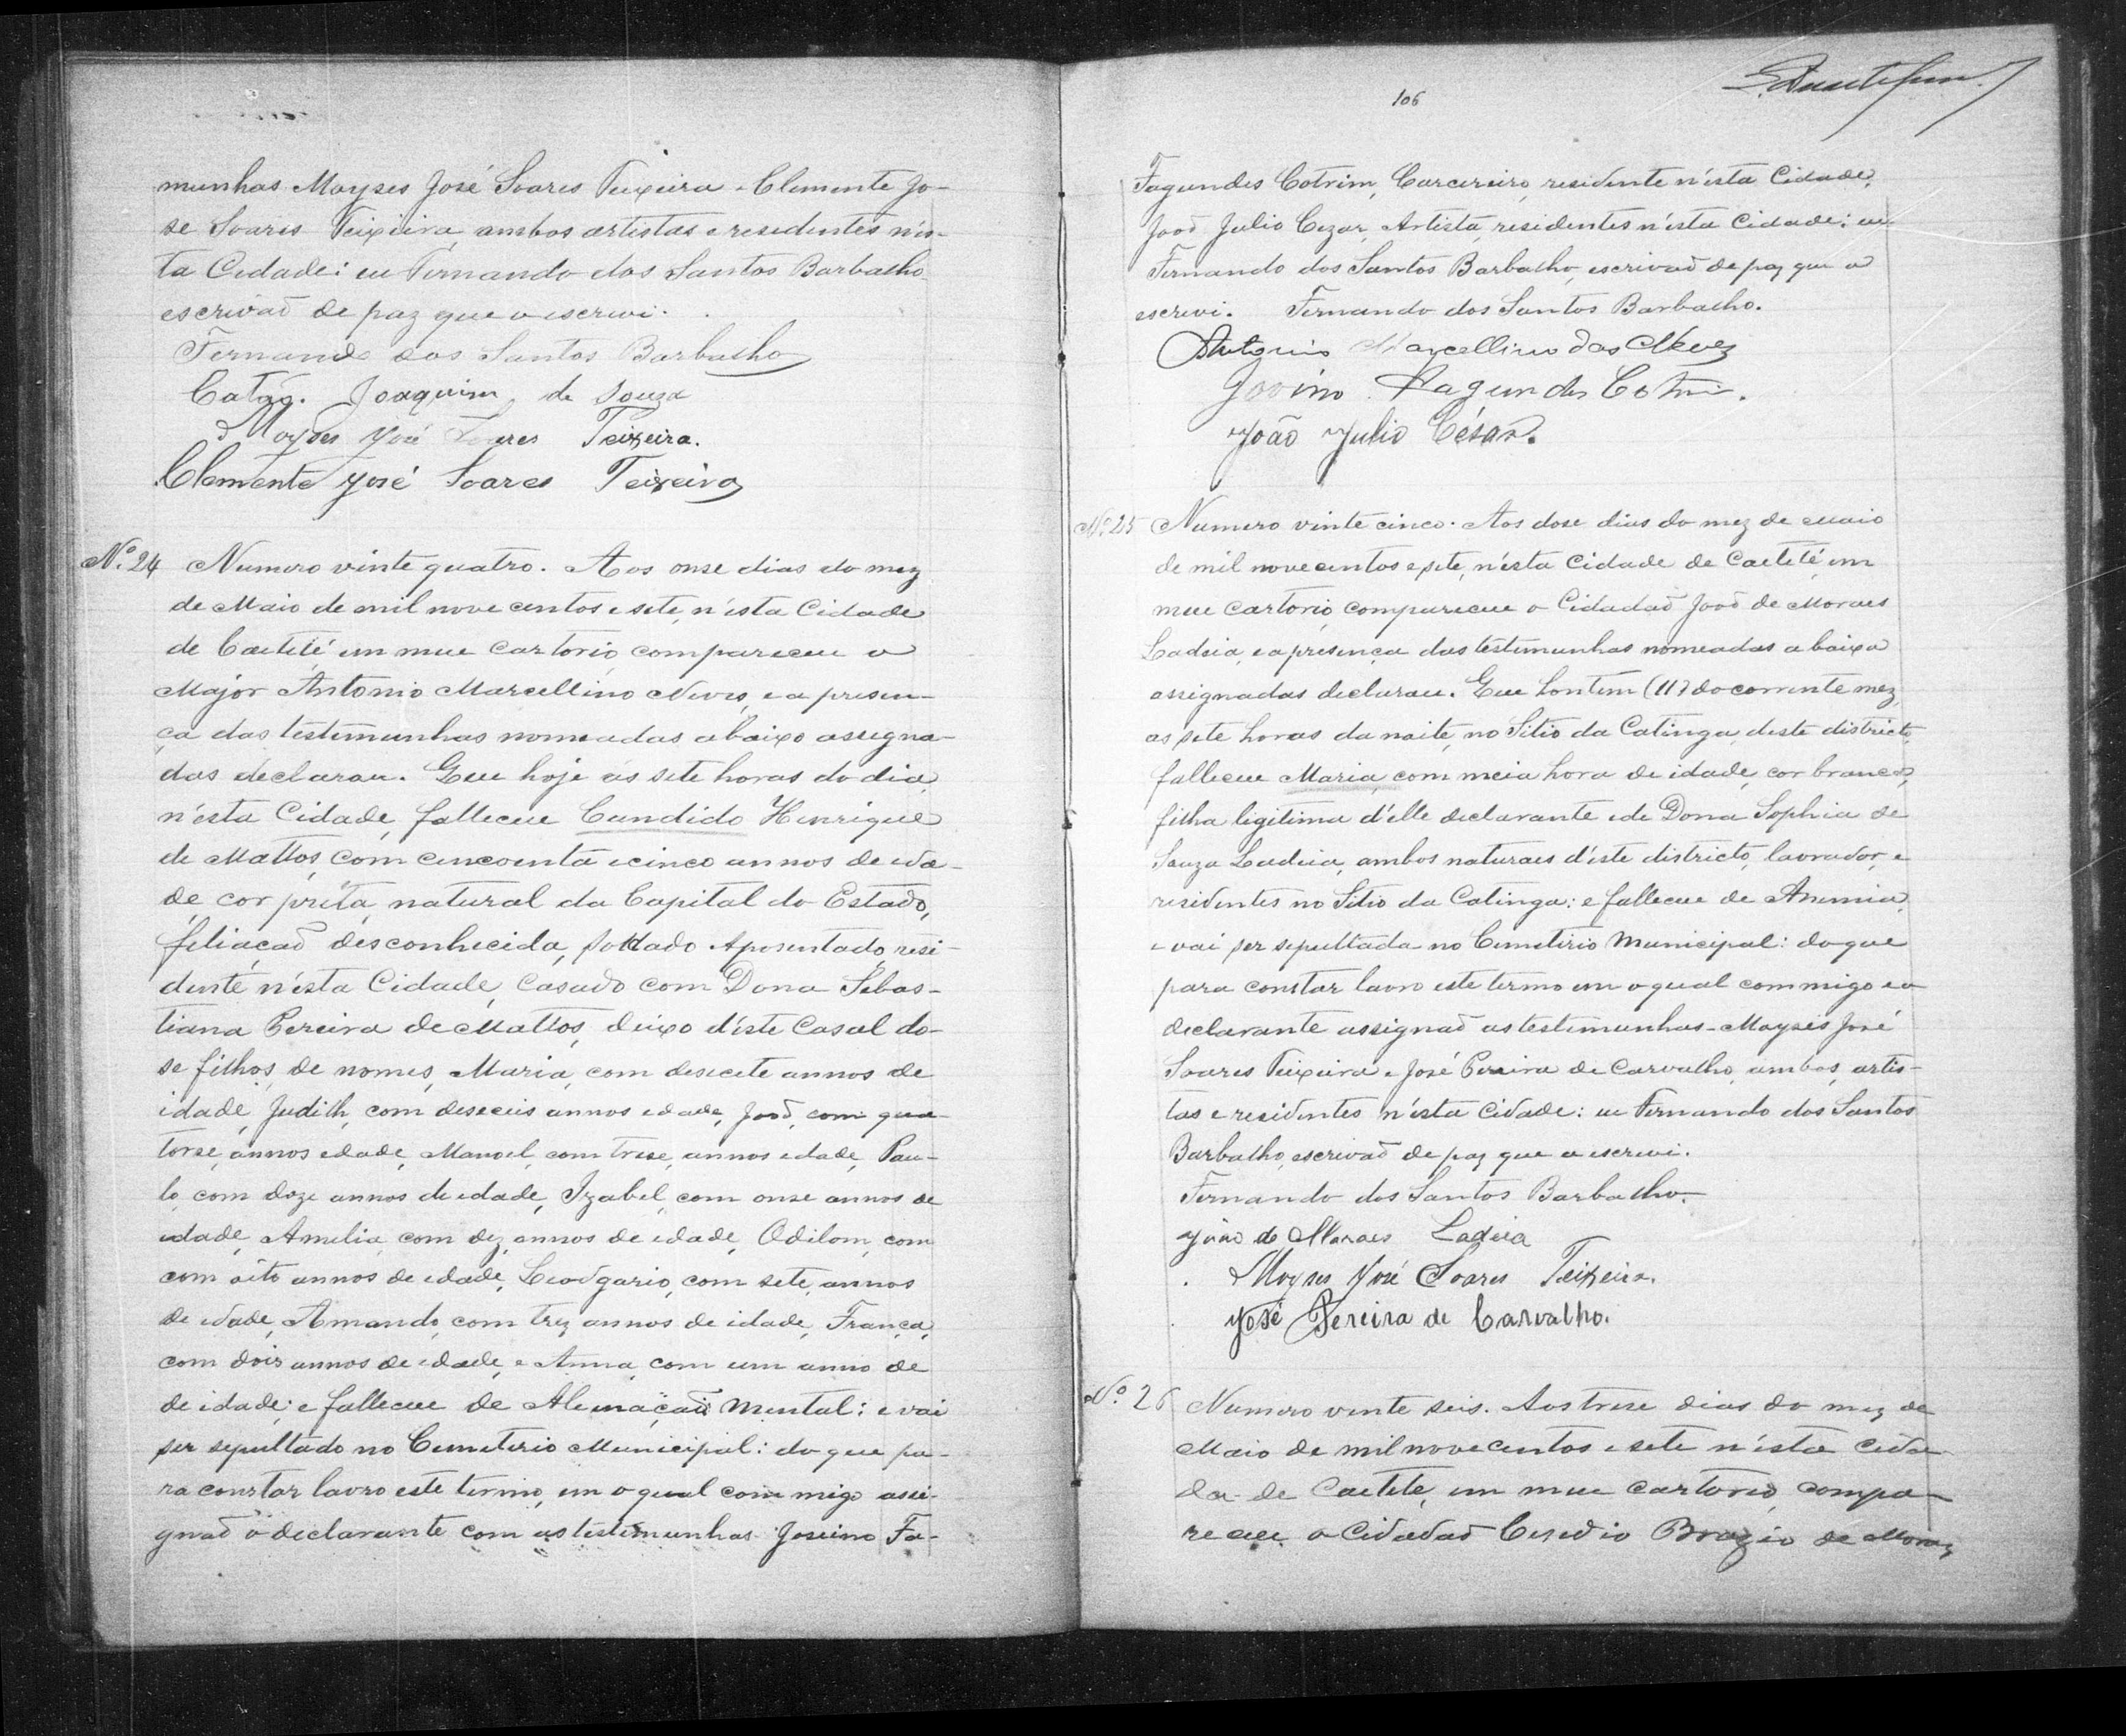 munhas Moyses José Soares Teixeira e Clemente Jo-
se Soares Teixeira, ambos artistas e residentes nes-
ta Cidade: eu Fernando dos Santos Barbalho
escrivaõ de paz que o escrevi.
Fernando dos Santos Barbalho
Joaquim de Souza
Moyses José Soares Teixeira.
Clemente José Soares Teixeira
Nº. 24 Numero vinte quatro. Aos onse dias do mez
de Maio de mil nove centos e sete, n'esta Cidade
de Caeteté em meu cartorio, compareceu o
Major Antonio Marcellino Neves, e a presen-
ça das testemunhas nomeadas abaixo assigna-
das declarou. Que hoje ás sete horas do dia,
n'esta Cidade, falleceu Candido Henrique
de Mattos, com cincoenta e cinco annos de ida-
de, cor preta, natural da Capital do Estado,
filiaçaõ desconhecida, soldado Aposentado, resi-
dente n'esta Cidade, Casado com Dona Sebas-
tiana Pereira de Mattos, deixo d'este Casal do-
se filhos, de nomes, Maria, com desecete annos de
idade, Judith, com deseceis annos edade, Joaõ, com qua-
torse, annos edade, Manoel, com trese, annos edade, Pau-
lo, com doze annos de edade, Izabel, com onse annos de
edade, Amelia, com dez, annos de edade, Odilom, com
com oito annos de edade, Leodgario, com sete, annos
de edade, Amando, com trez annos de idade, França,
com dois annos de edade, e Anna, com um anno de
de idade; e falleceu de Alienaçaõ Mental: e vai
ser sepultado no Cemeterio Municipal: do que pa-
ra constar lavro este termo, em o qual com migo assi-
gnaõ o declarante com as testemunhas Joviino Fa-
106
Fagundes Cotrim, Carcereiro, residente n'esta Cidade,
Joaõ Julio Cezar, Artista, residentes n'esta Cidade: eu
Fernando dos Santos Barbalho, escrivaõ de paz que o
escrevi. Fernando dos Santos Barbalho.
Antonio Marcellino das Neves
Jovino Fagundes Cotrim.
João Julio César.
Nº. 25 Numero vinte cinco. Aos dose dias do mez de Maio
de mil novecentos e sete, n'esta Cidade de Caeteté, em
meu cartorio, compareceu o Cidadaõ Joaõ de Moraes
Ladeia, e a presença das testemunhas nomeadas abaixo
assignadas declarou. Que hontem (11) do corrente mez,
as sete horas da noite, no Sitio da Catinga, deste districto,
falleceu Maria, com meia hora de idade, cor branca,
filha legitima d'elle declarante e de Dona Sophia de
Souza Ladeia, ambos naturaes d'este districto, lavrador, e
residentes no Sitio da Catinga: e falleceu de Anemia,
e vai ser sepultada no Cemeterio Municipal: do que
para constar lavro este termo em o qual commigo e o
declarante assignaõ as testemunhas Moyses José
Soares Teixeira e José Pereira de Carvalho, ambos, artis-
tas e residentes n'esta Cidade: eu Fernando dos Santos
Barbalho, escrivaõ de paz que o escrevi.
Fernando dos Santos Barbalho.
João de Moraes Ladeia
Moyses José Soares Teixeira.
José Pereira de Carvalho.
Nº. 26 Numero vente seis. Aos trese dias do mez de
Maio de mil novecentos e sete n'esta cida-
da de Caeteté, em meu cartorio, compa-
receu o Cidadaõ Brazio de Moraes